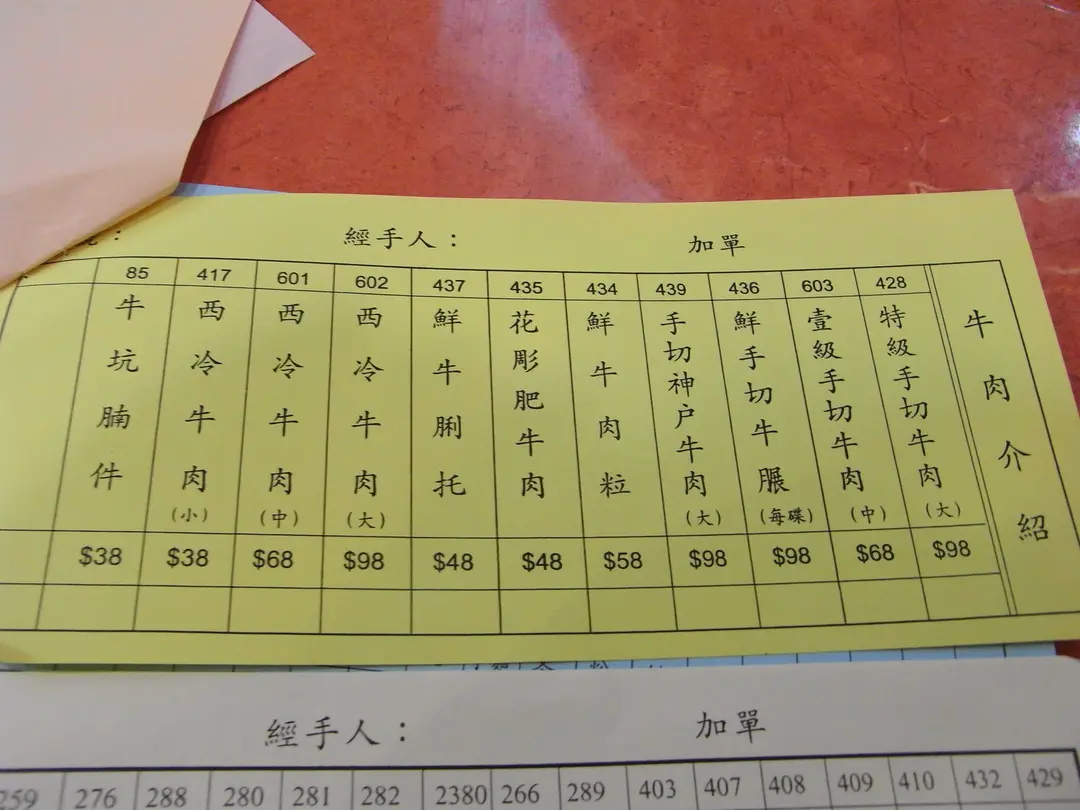 經手人： 加單
牛肉介紹
428 特級手切牛肉（大） $98
603 壹級手切牛肉（中） $68
436 鮮手切牛𦟌（每碟） $98
439 手切神戶牛肉（大） $98
434 鮮牛肉粒 $58
435 花彫肥牛肉 $48
437 鮮牛脷托 $48
602 西冷牛肉（大） $98
601 西冷牛肉（中） $68
417 西冷牛肉（小） $38
85 牛坑腩件 $38
經手人： 加單
259 276 288 280 281 282 2380 266 289 403 407 408 409 410 432 429